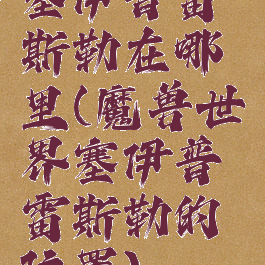 塞伊普雷
斯勒在哪
里(魔兽世
界塞伊普
雷斯勒的
位置)